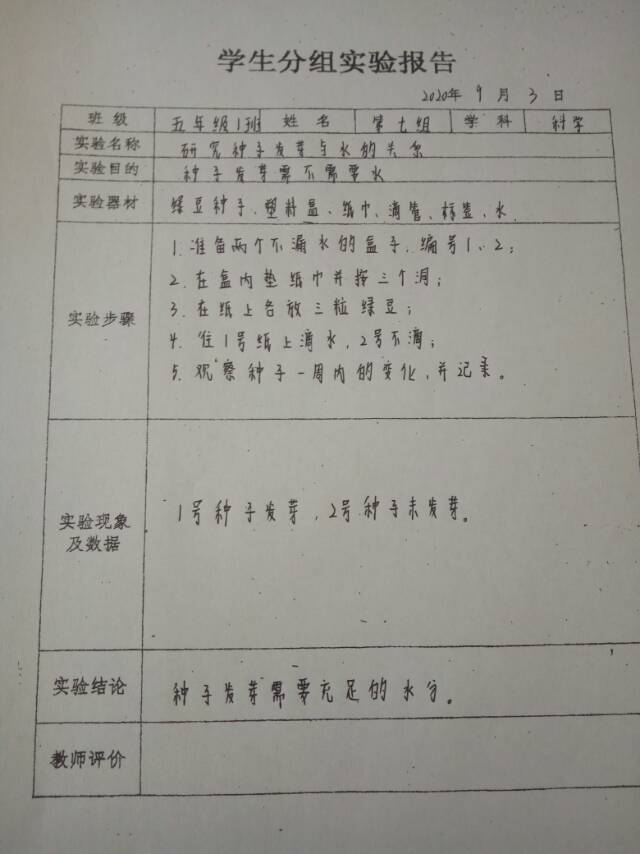 学生分组实验报告
2020年 9 月 3 日
班级 五年级1班 姓名 第七组 学科 科学
实验名称 研究种子发芽与水的关系
实验目的 种子发芽需不需要水
实验器材 绿豆种子、塑料盒、纸巾、滴管、标签、水
实验步骤
1.准备两个不漏水的盒子,编号1、2;
2.在盒内垫纸巾并按三个洞;
3.在纸上各放三粒绿豆;
4.往1号纸上滴水,2号不滴;
5.观察种子一周内的变化,并记录。
实验现象
及数据
1号种子发芽,2号种子未发芽。
实验结论 种子发芽需要充足的水分。
教师评价